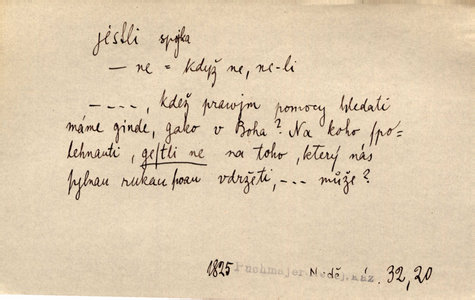 jéstli spojka
— ne = když ne, ne-li
– – – –, kdež prawjm pomocy hledati
máme ginde, gako v Boha? Na koho ſpo-
lehnauti, geſtli ne na toho, který nás
ſylnau rukau ſwau vdržeti, – – – může?
1825 Puchmajer Neděl. káz. 32, 20